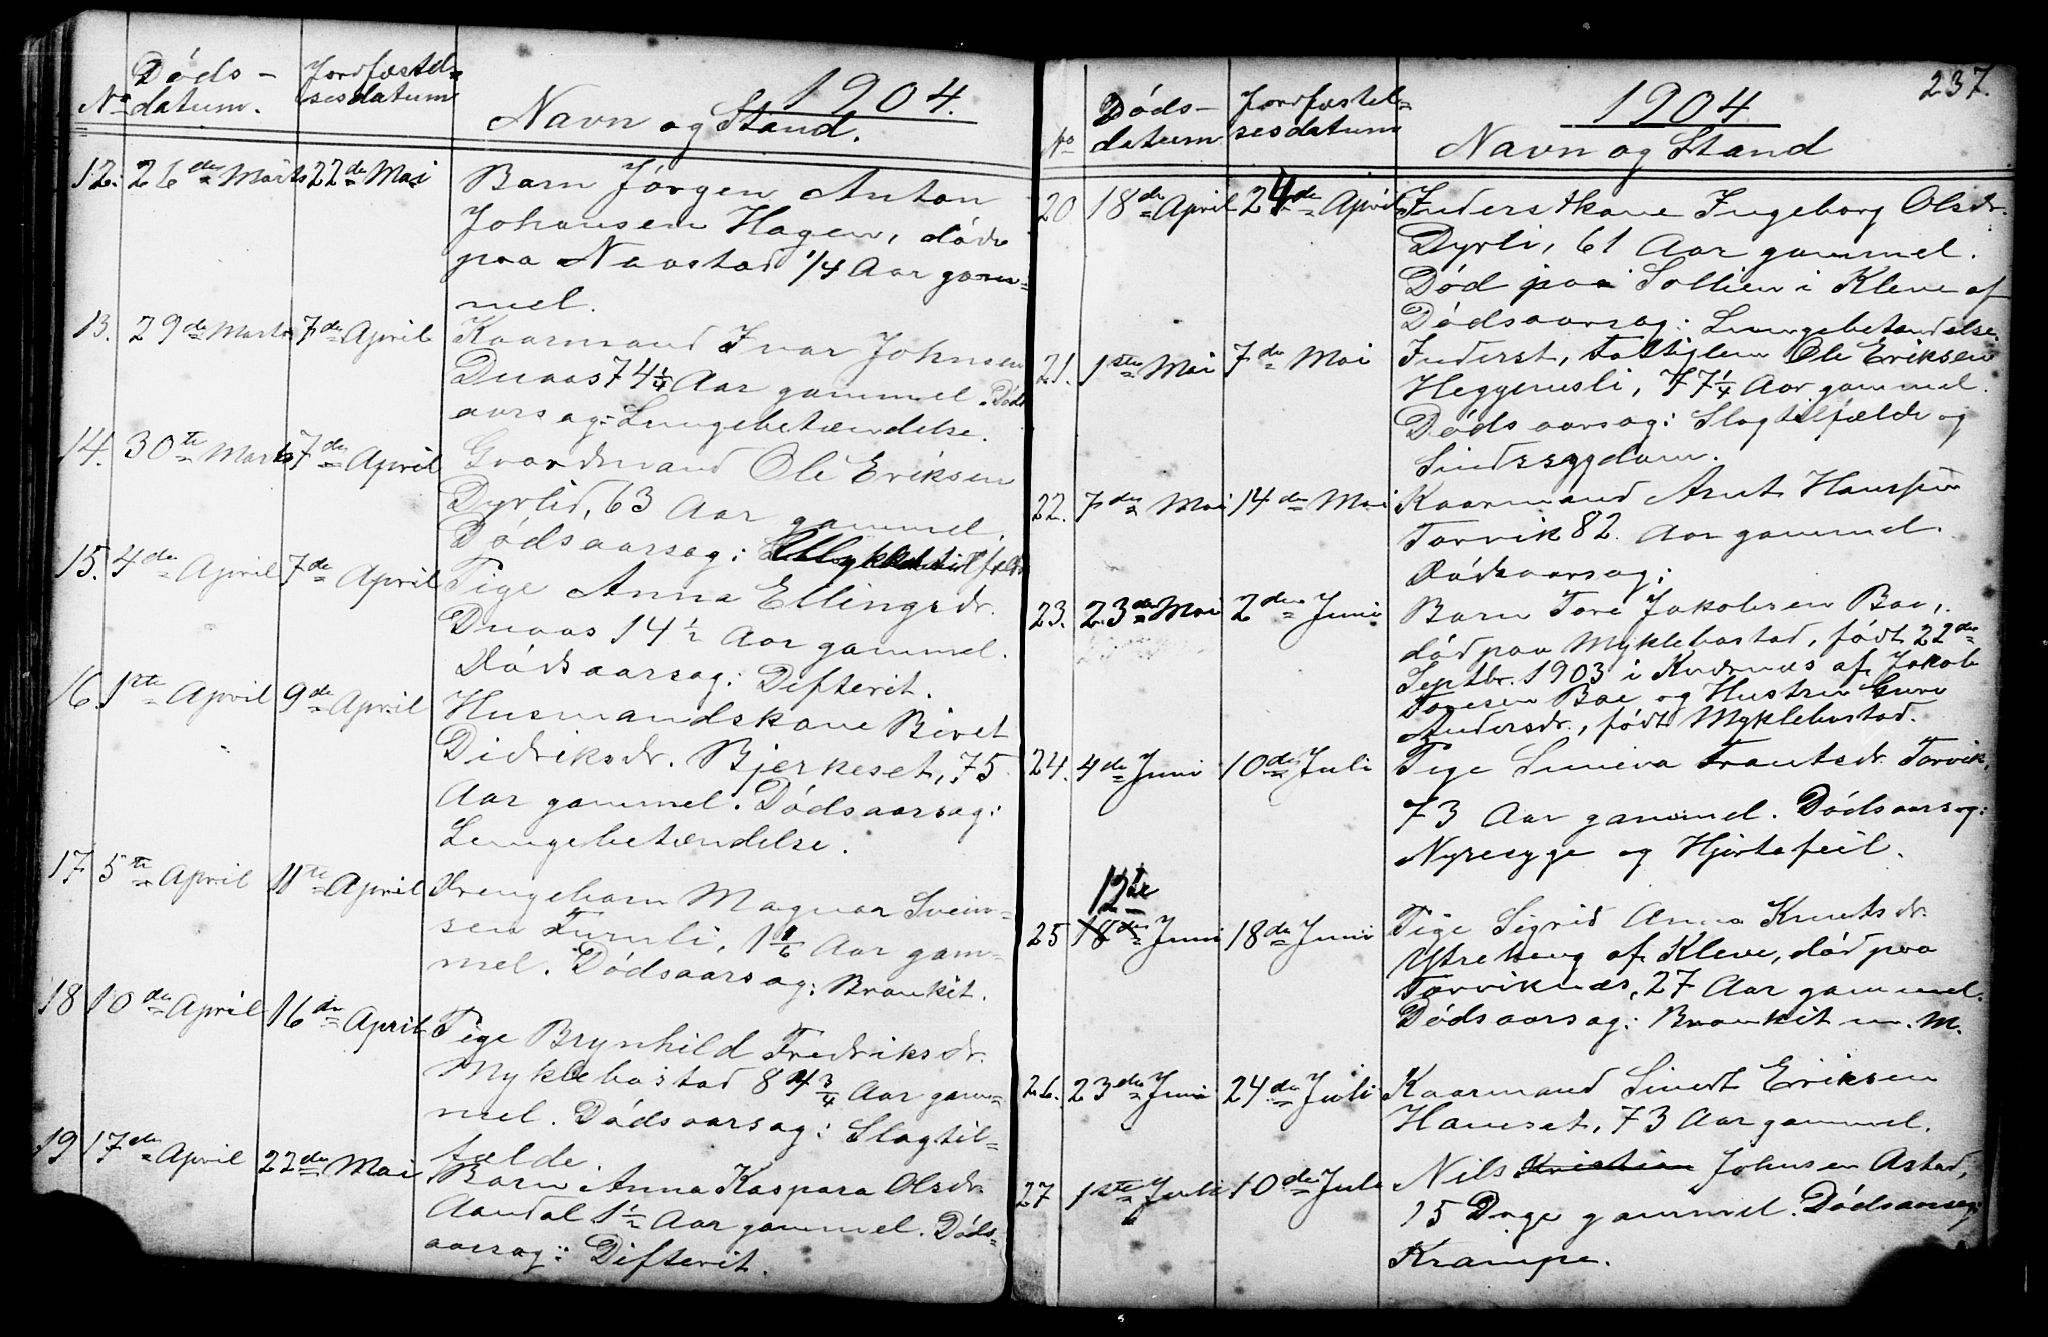 1904.
No Døds- datum. Jordfæstel= sesdatum Navn og Stand.
12. 26de Marts 22de Mai Barn Jørgen Anton
Johansen Hagen, døde
paa Naastad 1/4 Aar gam=
mel.
13. 29de Marts 7de April Kaarmand Ivar Johnsen
Duaas 74 1/4 Aar gammel. Døds
aarsag: Lungebetændelse.
14. 30te Marts 7de April Gaardmand Ole Eriksen
Dyrlid, 63 Aar gammel.
Dødsaarsag: Ulykkestilfælde
15. 4de April 7de April Pige Anna Ellingsdr.
Duaas 14 1/2 Aar gammel.
Dødsaarsag: Difterit.
16. 1ste April 9de April Husmandskone Biret
Didriksdr. Bjerkeset, 75
Aar gammel. Dødsaarsag:
Lungebetændelse.
17 5te April 11te April Drengebarn Magnar Svein=
sen Furuli, 1 1/6 Aar gam=
mel. Dødsaarsag: Bronkit.
18 10de April 16de April Pige Brynhild Fredriksdr.
Myklebostad 84 3/4 Aar gam=
mel. Dødsaarsag: Slagtil=
fælde.
19 17de April 22de Mai Barn Anna Kaspara Olsdr.
Aandal 1 1/2 Aar gammel. Døds=
aarsag: Difterit.
237.
1904
No Døds- datum Jordfæstel= sesdatum Navn og Stand
20 18de April 24de April Inderstkone Ingeborg Olsdr.
Dyrli, 61 Aar gammel.
Død paa Sollien i Kleve af
Dødsaarsag: Lungebetændelse.
21. 1ste Mai 7de Mai Inderst, Fattiglem Ole Eriksen
Heggemsli, 77 1/4 Aar gammel.
Dødsaarsag: Slagtilfælde og
Sindssygdom.
22. 7de Mai 14de Mai Kaarmand Arnt Hansen
Torvik 82 Aar gammel.
Dødsaarsag:
23. 23de Mai 2den Juni Barn Tore Jakobsen Boe,
død paa Myklebostad, født 22de
Septbr. 1903 i Kudnæs af Jakob
Toresen Boe og Hustru Guru
Andersdr., født Myklebostad.
24. 4de Juni 10de Juli Pige Suneva Frantsdr. Torvik,
73 Aar gammel. Dødsaarsag:
Nyresyge og Hjertefeil.
12te
25 18de Juni 18de Juni Pige Sigrid Anna Knutsdr.
Ytrehaug af Kleve, død paa
Torviknæs, 27 Aar gammel.
Dødsaarsag: Bronkit m. M.
26. 23de Juni 24de Juli Kaarmand Sivert Eriksen
Haneset, 73 Aar gammel.
27 1ste Juli 10de Juli Nils Kristian Johnsen Astad,
15 Dage gammel. Dødsaarsag:
Krampe.